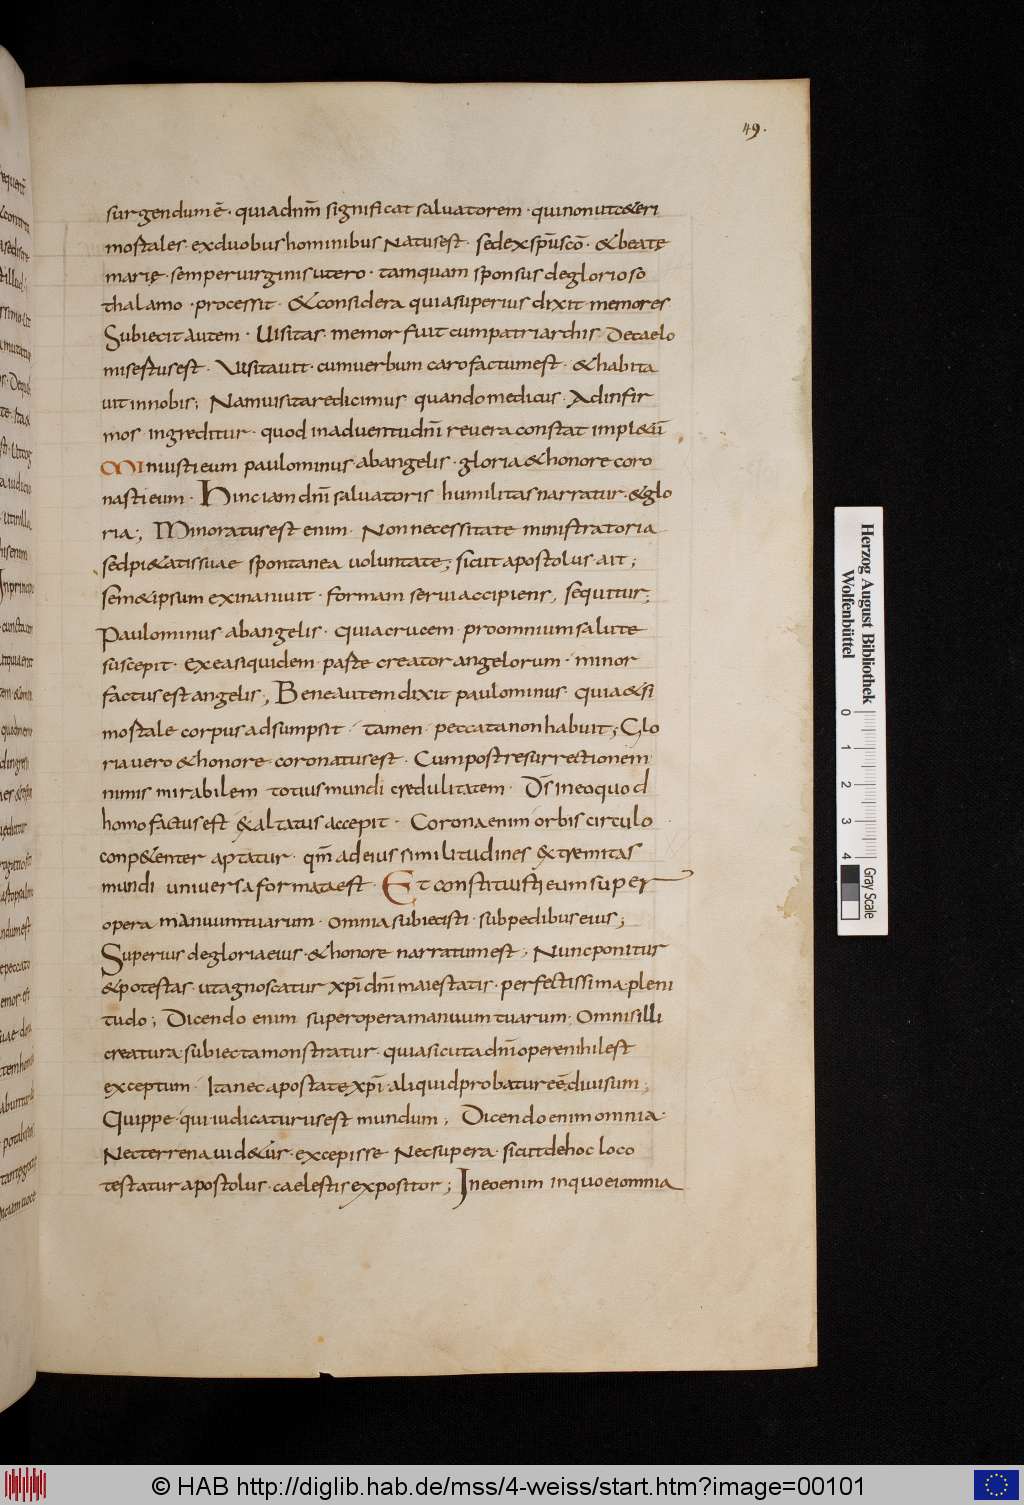 49.
surgendum ē · quia dnm̄ significat salvatorem · qui non ut &eri
mortales ex duobus hominibus natus est · sed ex sp̄u sc̄o · & beatę
marię semper virginis utero · tamquam sponsus de glorioso
thalamo · processit · & considera quia superius dixit memor es
Subiecit autem · Uisitas · memor fuit cum patriarchis · De caelo
misertus est · Visitavit · cum verbum caro factum est · & habita
vit in nobis; Nam visitare dicimus quando medicus · Ad infir
mos ingreditur · quod in adventu dn̄i revera constat impl&ū
Minuisti eum paulominus ab angelis · gloria & honore coro
nasti eum · Hinc iam dn̄i salvatoris humilitas narratur · & glo
ria; Minoratus est enim · Non necessitate ministratoria
sed pi&atis suae spontanea voluntate; sicut apostolus ait;
sem&ipsum exinanivit · formam servi accipiens, sequitur;
Paulominus ab angelis · quia crucem pro omnium salute
suscepit · ex ea siquidem parte creator angelorum · minor
factus est angelis; Bene autem dixit paulominus · quia & si
mortale corpus adsumpsit · tamen peccata non habuit; Glo
ria vero & honore coronatus est · Cum post resurrectionem
nimis mirabilem totius mundi credulitatem · Ds̄ in eo quod
homo factus est &altatus accepit · Corona enim orbis circulo
conp&enter aptatur · qm̄ ad eius similitudines &tremitas
mundi universa formata est · Et constituisti eum super
opera manuum tuarum · omnia subiecisti · sub pedibus eius;
Superius de gloria eius · & honore narratum est; Nunc ponitur
& potestas · ut agnoscatur xp̄i dn̄i maiestatis · perfectissima pleni
tudo; Dicendo enim super opera manuum tuarum; Omnis illi
creatura subiecta monstratur · quia sicut a dn̄i opere nihil est
exceptum · Ita nec a potestate xp̄i · aliquid probatur eē divisum;
Quippe · qui iudicaturus est mundum; Dicendo enim omnia ·
Nec terrena vid&ur · excepisse Nec supera · sicut de hoc loco
testatur apostolus · caelestis expositor; In eo enim in quo ei omnia
Herzog August Bibliothek
Wolfenbüttel
0 1 2 3 4
Gray Scale
© HAB http://diglib.hab.de/mss/4-weiss/start.htm?image=00101